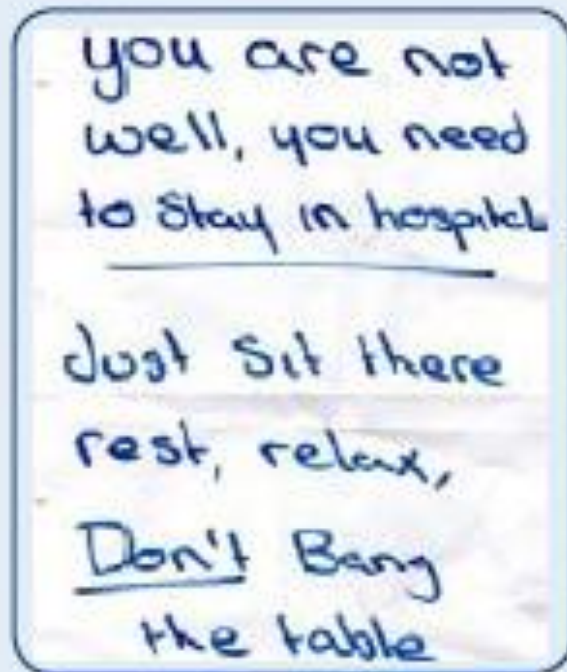 you are not
well, you need
to stay in hospital
Just sit there
rest, relax,
Don't Bang
the table